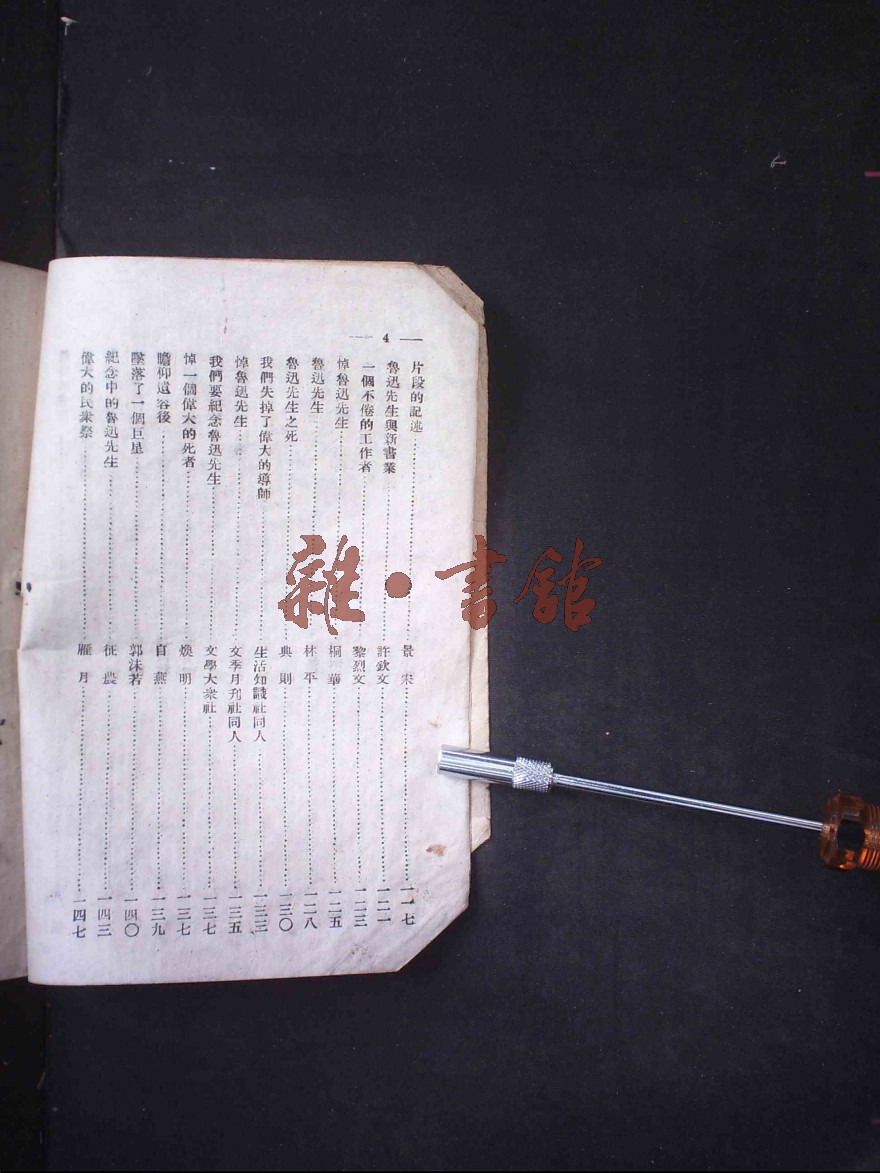 — 4 —
片段的記述 景宋 一一七
魯迅先生與新書業 許欽文 一二一
一個不倦的工作者 黎烈文 一二三
悼魯迅先生 桐華 一二五
魯迅先生 林平 一二八
魯迅先生之死 典則 一三〇
我們失掉了偉大的導師 生活知識社同人 一三三
悼魯迅先生 文季月刊社同人 一三五
我們要紀念魯迅先生 文學大衆社 一三七
悼一個偉大的死者 煥明 一三七
瞻仰遺容後 自燕 一三九
墜落了一個巨星 郭沫若 一四〇
紀念中的魯迅先生 征農 一四三
偉大的民衆祭 雁月 一四七
雜·書館